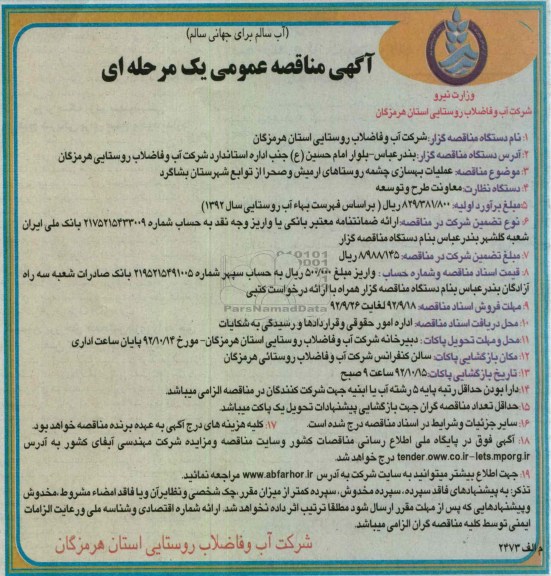 (آب سالم برای جهانی سالم)
آگهی مناقصه عمومی یک مرحله ای
وزارت نیرو
شرکت آب وفاضلاب روستایی استان هرمزگان
۱: نام دستگاه مناقصه گزار: شرکت آب وفاضلاب روستایی استان هرمزگان
۲: آدرس دستگاه مناقصه گزار: بندرعباس-بلوار امام حسین (ع) جنب اداره استاندارد شرکت آب و فاضلاب روستایی هرمزگان
۳: موضوع مناقصه: عملیات بهسازی چشمه روستاهای ارمیش وصحرا از توابع شهرستان بشاگرد
۴: دستگاه نظارت: معاونت طرح و توسعه
۵: مبلغ برآورد اولیه: ۸۲۹/۳۸۱/۸۰۰ ریال ( براساس فهرست بهاء آب روستایی سال ۱۳۹۲)
۶: نوع تضمین شرکت در مناقصه: ارائه ضمانتنامه معتبر بانکی یا واریز وجه نقد به حساب شماره ۲۱۷۵۲۱۵۴۳۳۰۰۹ بانک ملی ایران
شعبه گلشهر بندرعباس بنام دستگاه مناقصه گزار
۷: مبلغ تضمین شرکت در مناقصه: ۸/۹۸۸/۱۲۵ ریال
۸: قیمت اسناد مناقصه وشماره حساب : واریز مبلغ ۵۰۰/۰۰۰ ریال به حساب سپهر شماره ۲۱۹۵۲۱۵۴۹۱۰۰۵ بانک صادرات شعبه سه راه
آزادگان بندرعباس بنام دستگاه مناقصه گزار همراه با ارائه درخواست کتبی
۹: مهلت فروش اسناد مناقصه: ۹۲/۹/۱۸ لغایت ۹۲/۹/۲۶
۱۰: محل دریافت اسناد مناقصه: اداره امور حقوقی وقراردادها و رسیدگی به شکایات
۱۱: محل و مهلت تحویل پاکات : دبیرخانه شرکت آب وفاضلاب روستایی استان هرمزگان- مورخ ۹۲/۱۰/۱۴ پایان ساعت اداری
۱۲: مکان بازگشایی پاکات: سالن کنفرانس شرکت آب و فاضلاب روستائی هرمزگان
۱۳: تاریخ بازگشایی پاکات: ۹۲/۱۰/۱۵ ساعت ۹ صبح
۱۴: دارا بودن حداقل رتبه پایه ۵ رشته آب یا ابنیه جهت شرکت کنندگان در مناقصه الزامی میباشد.
۱۵: حداقل تعداد مناقصه گران جهت بازگشایی پیشنهادات تحویل یک پاکت میباشد.
۱۶: سایر جزئیات وشرایط در اسناد مناقصه درج شده است. ۱۷: کلیه هزینه های درج آگهی به عهده برنده مناقصه خواهد بود.
۱۸: آگهی فوق در پایگاه ملی اطلاع رسانی مناقصات کشور وسایت مناقصه ومزایده شرکت مهندسی آبفای کشور به آدرس
tender.oww.co.ir-iets.mporg.ir درج خواهد شد.
۱۹: جهت اطلاع بیشتر میتوانید به سایت شرکت به آدرس www.abfarhor.ir مراجعه نمائید.
تذکر: به پیشنهادهای فاقد سپرده، سپرده مخدوش، سپرده کمتر از میزان مقرر، چک شخصی ونظایر آن و یا فاقد امضاء مشروط، مخدوش
و پیشنهادهایی که پس از مهلت مقرر ارسال شود مطلقا ترتیب اثر داده نخواهد شد. ارائه شماره اقتصادی وشناسه ملی ورعایت الزامات
ایمنی توسط کلیه مناقصه گران الزامی میباشد.
شرکت آب وفاضلاب روستایی استان هرمزگان
م الف ۲۴۷۳
ParsNamadData